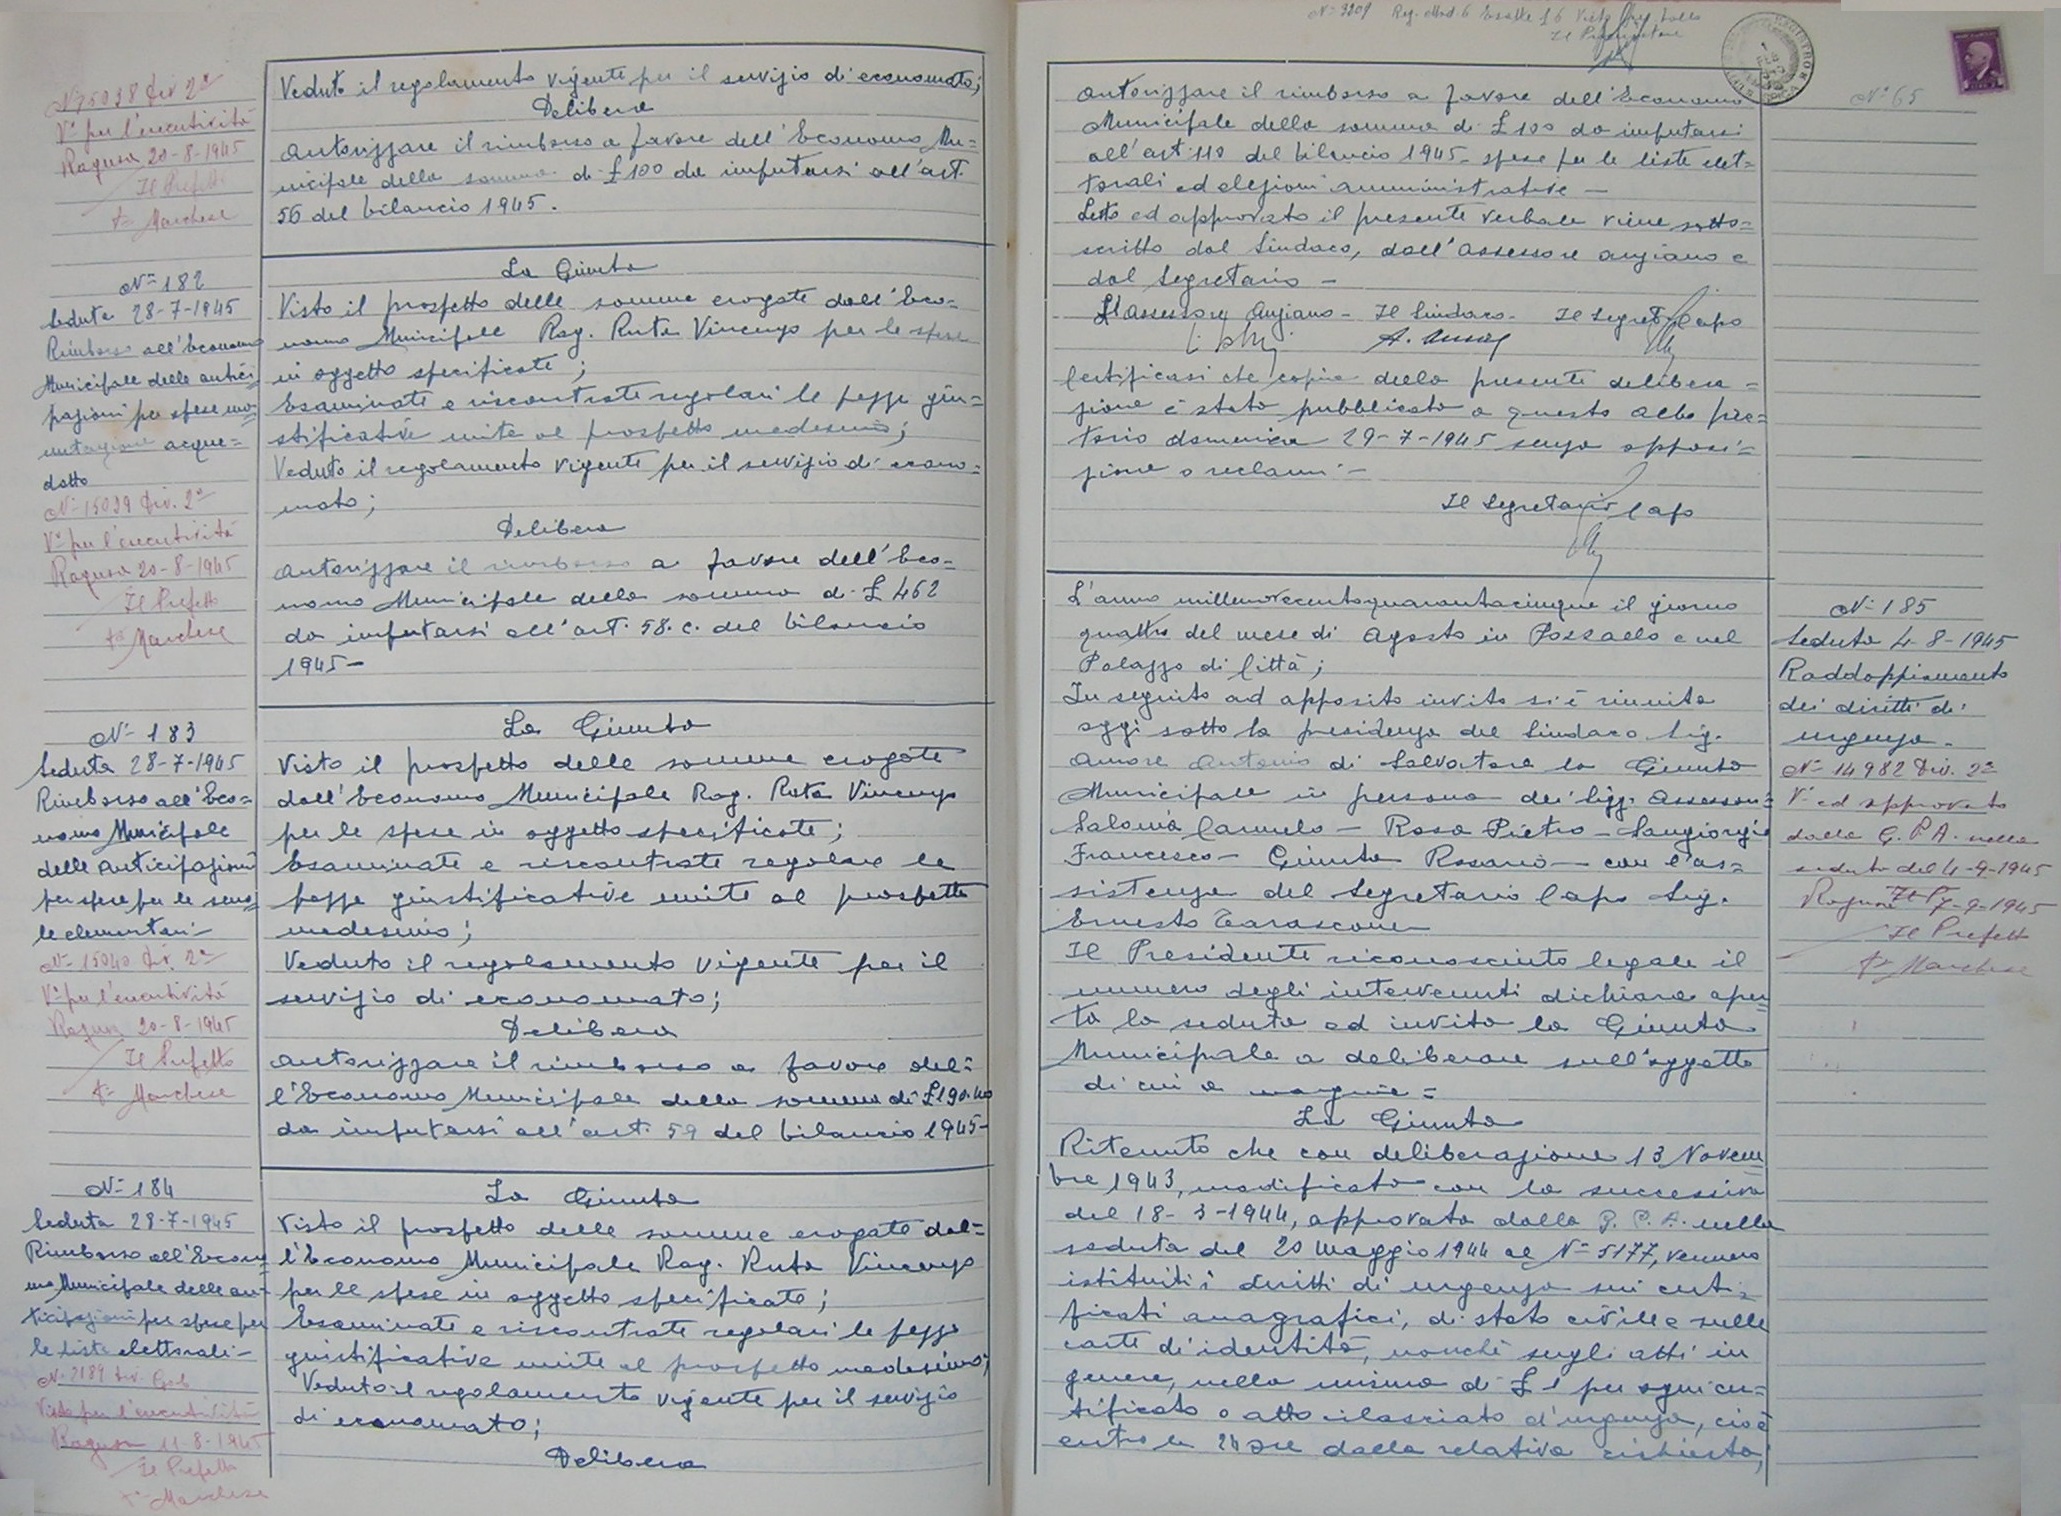 N° 15038 Div. 2ª
V° per l'esecutività
Ragusa 20-8-1945
Il Prefetto
Fto Marchese
Veduto il regolamento vigente per il servizio di economato;
Delibera
Autorizzare il rimborso a favore dell'Economo Mu=
nicipale della somma di £ 100 da imputarsi all'art.
56 del bilancio 1945.
N° 182
Seduta 28-7-1945
Rimborso all'Economo
Municipale delle antici=
pazioni per spese ma=
nutazione acque=
dotto
N° 15039 Div. 2ª
V° per l'esecutività
Ragusa 20-8-1945
Il Prefetto
Fto Marchese
La Giunta
Visto il prospetto delle somme erogate dall'Eco=
nomo Municipale Rag. Ruta Vincenzo per le spese
in oggetto specificate;
Esaminate e riscontrate regolari le pezze giu=
stificative unite al prospetto medesimo;
Veduto il regolamento vigente per il servizio di econo=
mato;
Delibera
Autorizzare il rimborso a favore dell'Eco=
nomo Municipale della somma di £ 462
da imputarsi all'art. 58. c. del bilancio
1945-
N° 183
Seduta 28-7-1945
Rimborso all'Eco=
nomo Municipale
delle anticipazioni
per spese per le scuo=
le elementari-
N° 15040 Div. 2ª
V° per l'esecutività
Ragusa 20-8-1945
Il Prefetto
Fto Marchese
La Giunta
Visto il prospetto delle somme erogate
dall'Economo Municipale Rag. Ruta Vincenzo
per le spese in oggetto specificate;
Esaminate e riscontrate regolari le
pezze giustificative unite al prospetto
medesimo;
Veduto il regolamento vigente per il
servizio di economato;
Delibera
Autorizzare il rimborso a favore del=
l'Economo Municipale della somma di £ 190.40
da imputarsi all'art. 59 del bilancio 1945-
N° 184
Seduta 28-7-1945
Rimborso all'Econo=
mo Municipale delle an=
ticipazioni per spese per
le liste elettorali-
N° 2189 Div. Gab
Visto per l'esecutività
Ragusa 11-8-1945
Il Prefetto
Fto Marchese
La Giunta
Visto il prospetto delle somme erogate dal=
l'Economo Municipale Rag. Ruta Vincenzo
per le spese in oggetto specificate;
Esaminate e riscontrate regolari le pezze
giustificative unite al prospetto medesimo;
Veduto il regolamento vigente per il servizio
di economato;
Delibera
N° 3209 Reg. Mod. 6 Esatte £ 6
N° 65
Autorizzare il rimborso a favore dell'Economo
Municipale della somma di £ 100 da imputarsi
all'art. 110 del bilancio 1945- spese per le liste elet=
torali ed elezioni amministrative-
Letto ed approvato il presente verbale viene sotto=
scritto dal Sindaco, dall'Assessore anziano e
dal Segretario-
L'Assessore Anziano- Il Sindaco- Il Segret. Capo
Certificasi che copia della presente delibera=
zione è stata pubblicata a questo albo pre=
torio domenica 29-7-1945 senza opposi=
zione o reclami-
Il Segretario Capo
L'anno millenovecentoquarantacinque il giorno
quattro del mese di Agosto in Pozzallo e nel
Palazzo di Città;
In seguito ad apposito invito si è riunita
oggi sotto la presidenza del Sindaco Sig.
Amore Antonio di Salvatore la Giunta
Municipale in persona dei Sigg. Assessori=
Salonia Carmelo- Rosa Pietro- Sangiorgio
Francesco- Giunta Rosario- con l'as=
sistenza del Segretario Capo Sig.
Ernesto Tarascone
Il Presidente riconosciuto legale il
numero degli intervenuti dichiara aper=
ta la seduta ed invita la Giunta
Municipale a deliberare sull'oggetto
di cui a margine=
La Giunta
Ritenuto che con deliberazione 13 Novem=
bre 1943, modificata con la successiva
del 18-3-1944, approvata dalla G. P. A. nella
seduta del 20 Maggio 1944 al N° 5177, vennero
istituiti i diritti di urgenza sui certi=
ficati anagrafici, di stato civile e sulle
carte d'identità, nonchè sugli atti in
genere, nella misura di £ 1 per ogni cer=
tificato o atto rilasciato d'urgenza, cioè
entro le 24 ore dalla relativa richiesta;
N° 185
Seduta 4-8-1945
Raddoppiamento
dei diritti di
urgenza-
N° 14982 Div. 2ª
V° ed approvato
dalla G. P. A. nella
seduta del 4-9-1945
Ragusa 7-9-1945
Il Prefetto
Fto Marchese